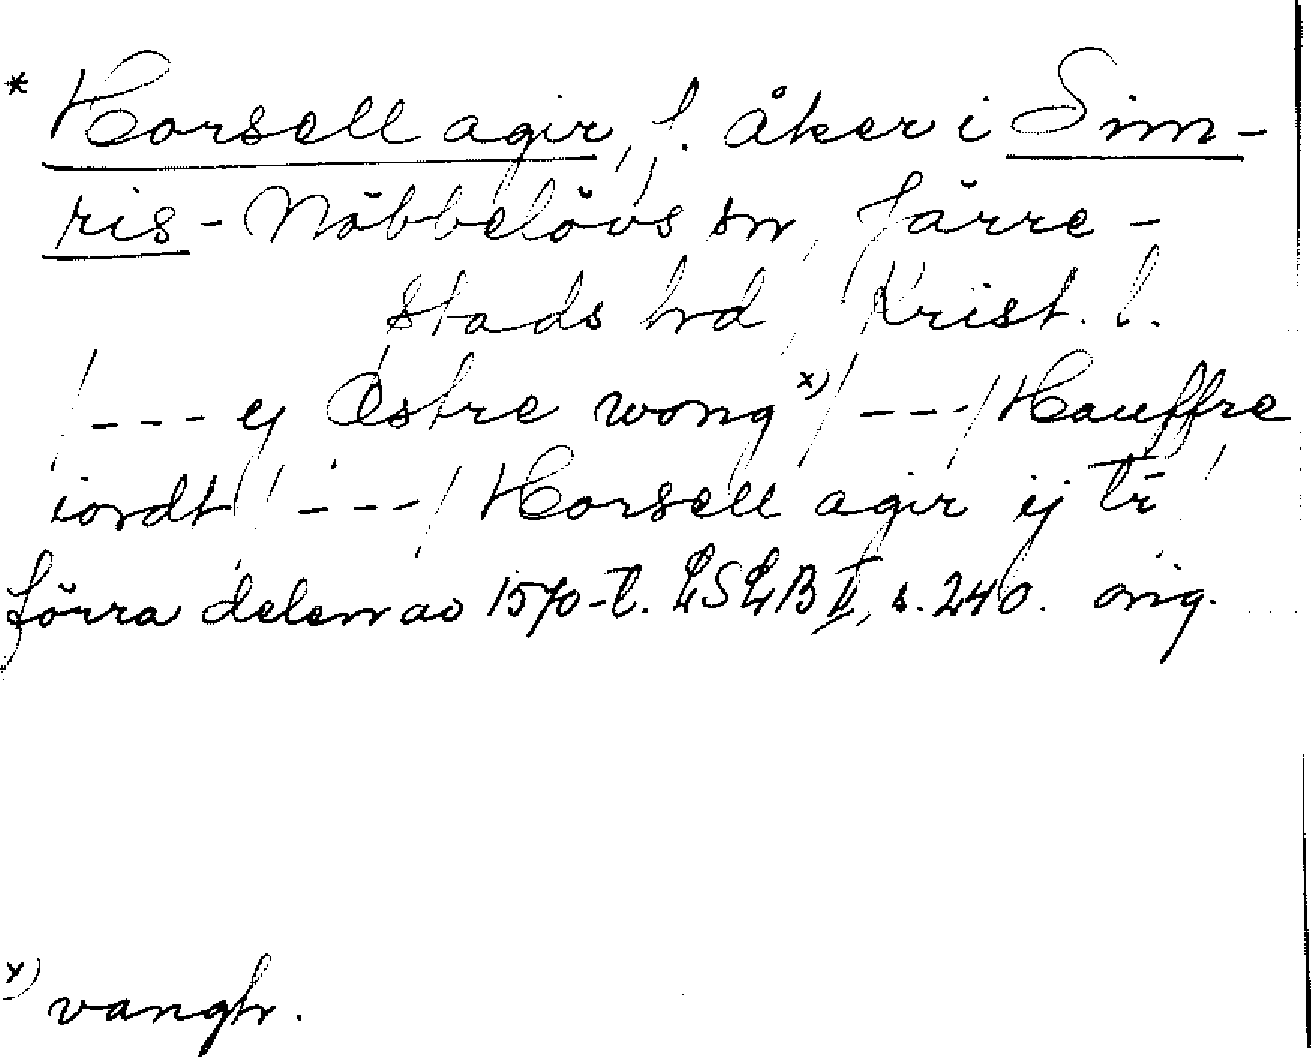 * Horsell agir, f. åker i Sim-
ris-Nöbbelövs sn, Järre-
stads hd, Krist. l.
/---ej Östre wong x)/---/Hauffre
iordt/---/Horsell agir ij tr
förra delen av 1570-t. LSLB II, s. 240. orig.
x) vangfr.